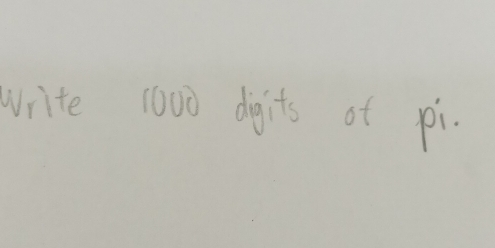 Write 1000 digits of pi.